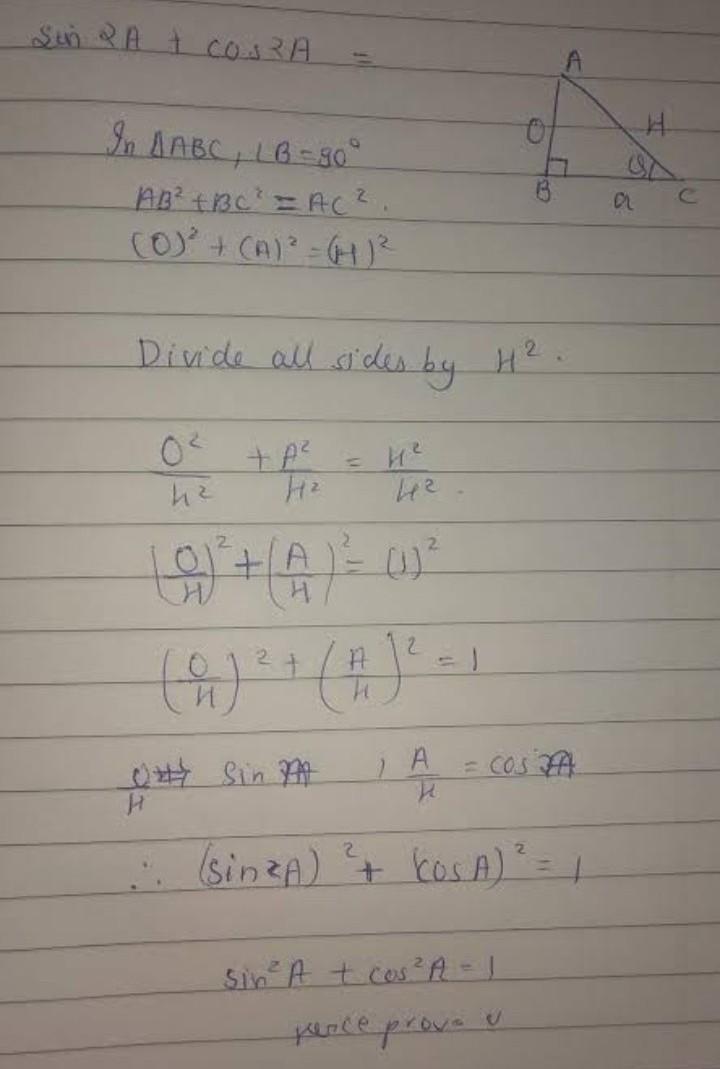 sin 2A + cos 2A =
A
O H
θ
B a C
In ΔABC, ∠B = 90°
AB² + BC² = AC².
(O)² + (A)² = (H)²
Divide all sides by H².
O²/H² + A²/H² = H²/H².
(O/H)² + (A/H)² = (1)²
(O/H)² + (A/H)² = 1
O/H = sin A , A/H = cos A
∴ (sin 2A)² + (cos A)² = 1
sin² A + cos² A = 1